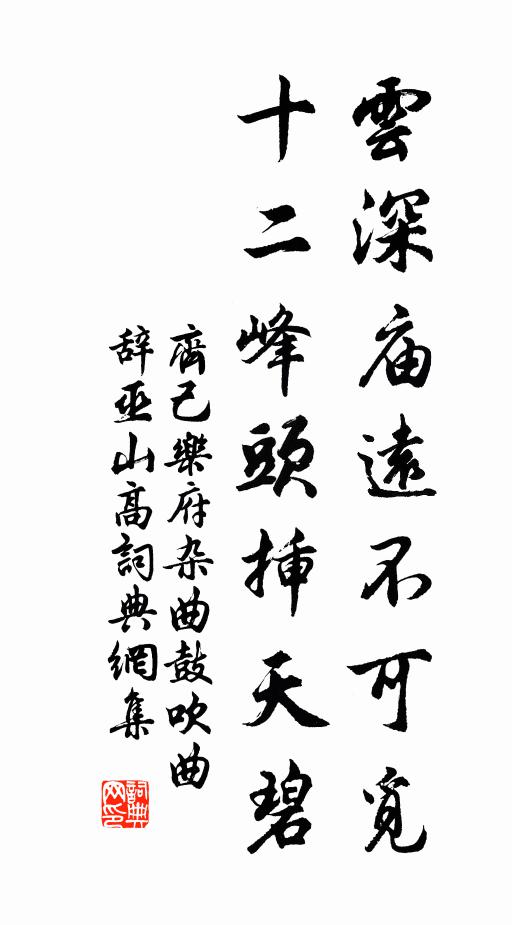 雲深庙遠不可覓
十二峰頭揷天碧
齊己樂府杂曲鼓吹曲
辞巫山高詞典網集
詞典网印